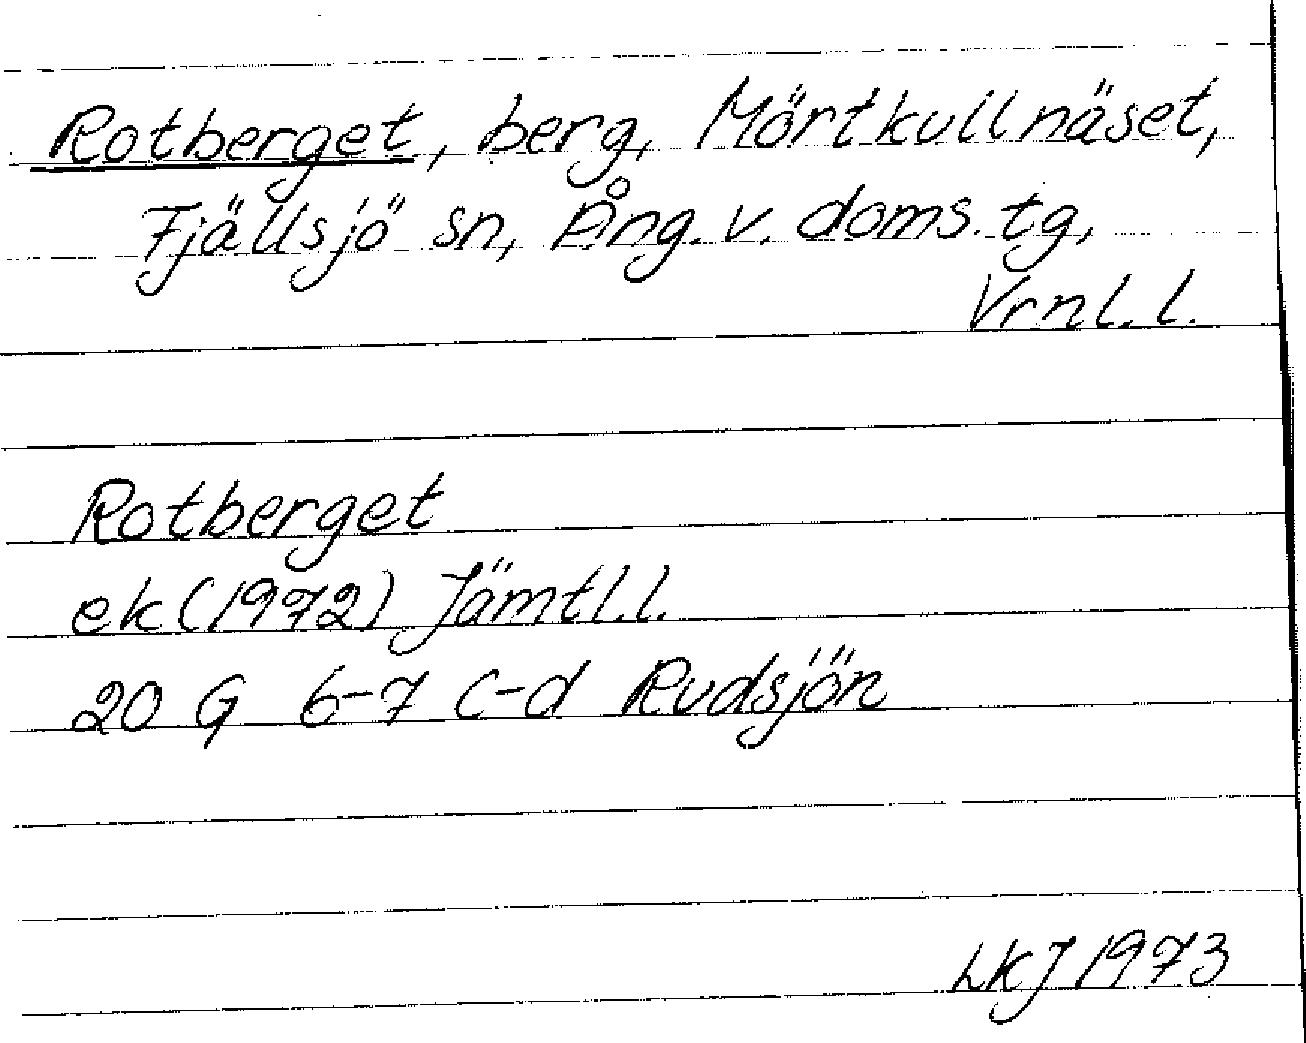 Rotberget, berg, Mörtkullnäset,
Fjällsjö sn, Ång. v. doms. tg,
Vrnl. l.
Rotberget
ek (1972) Jämtl. l.
20 G 6-7 c-d Rudsjön
LKJ 1973